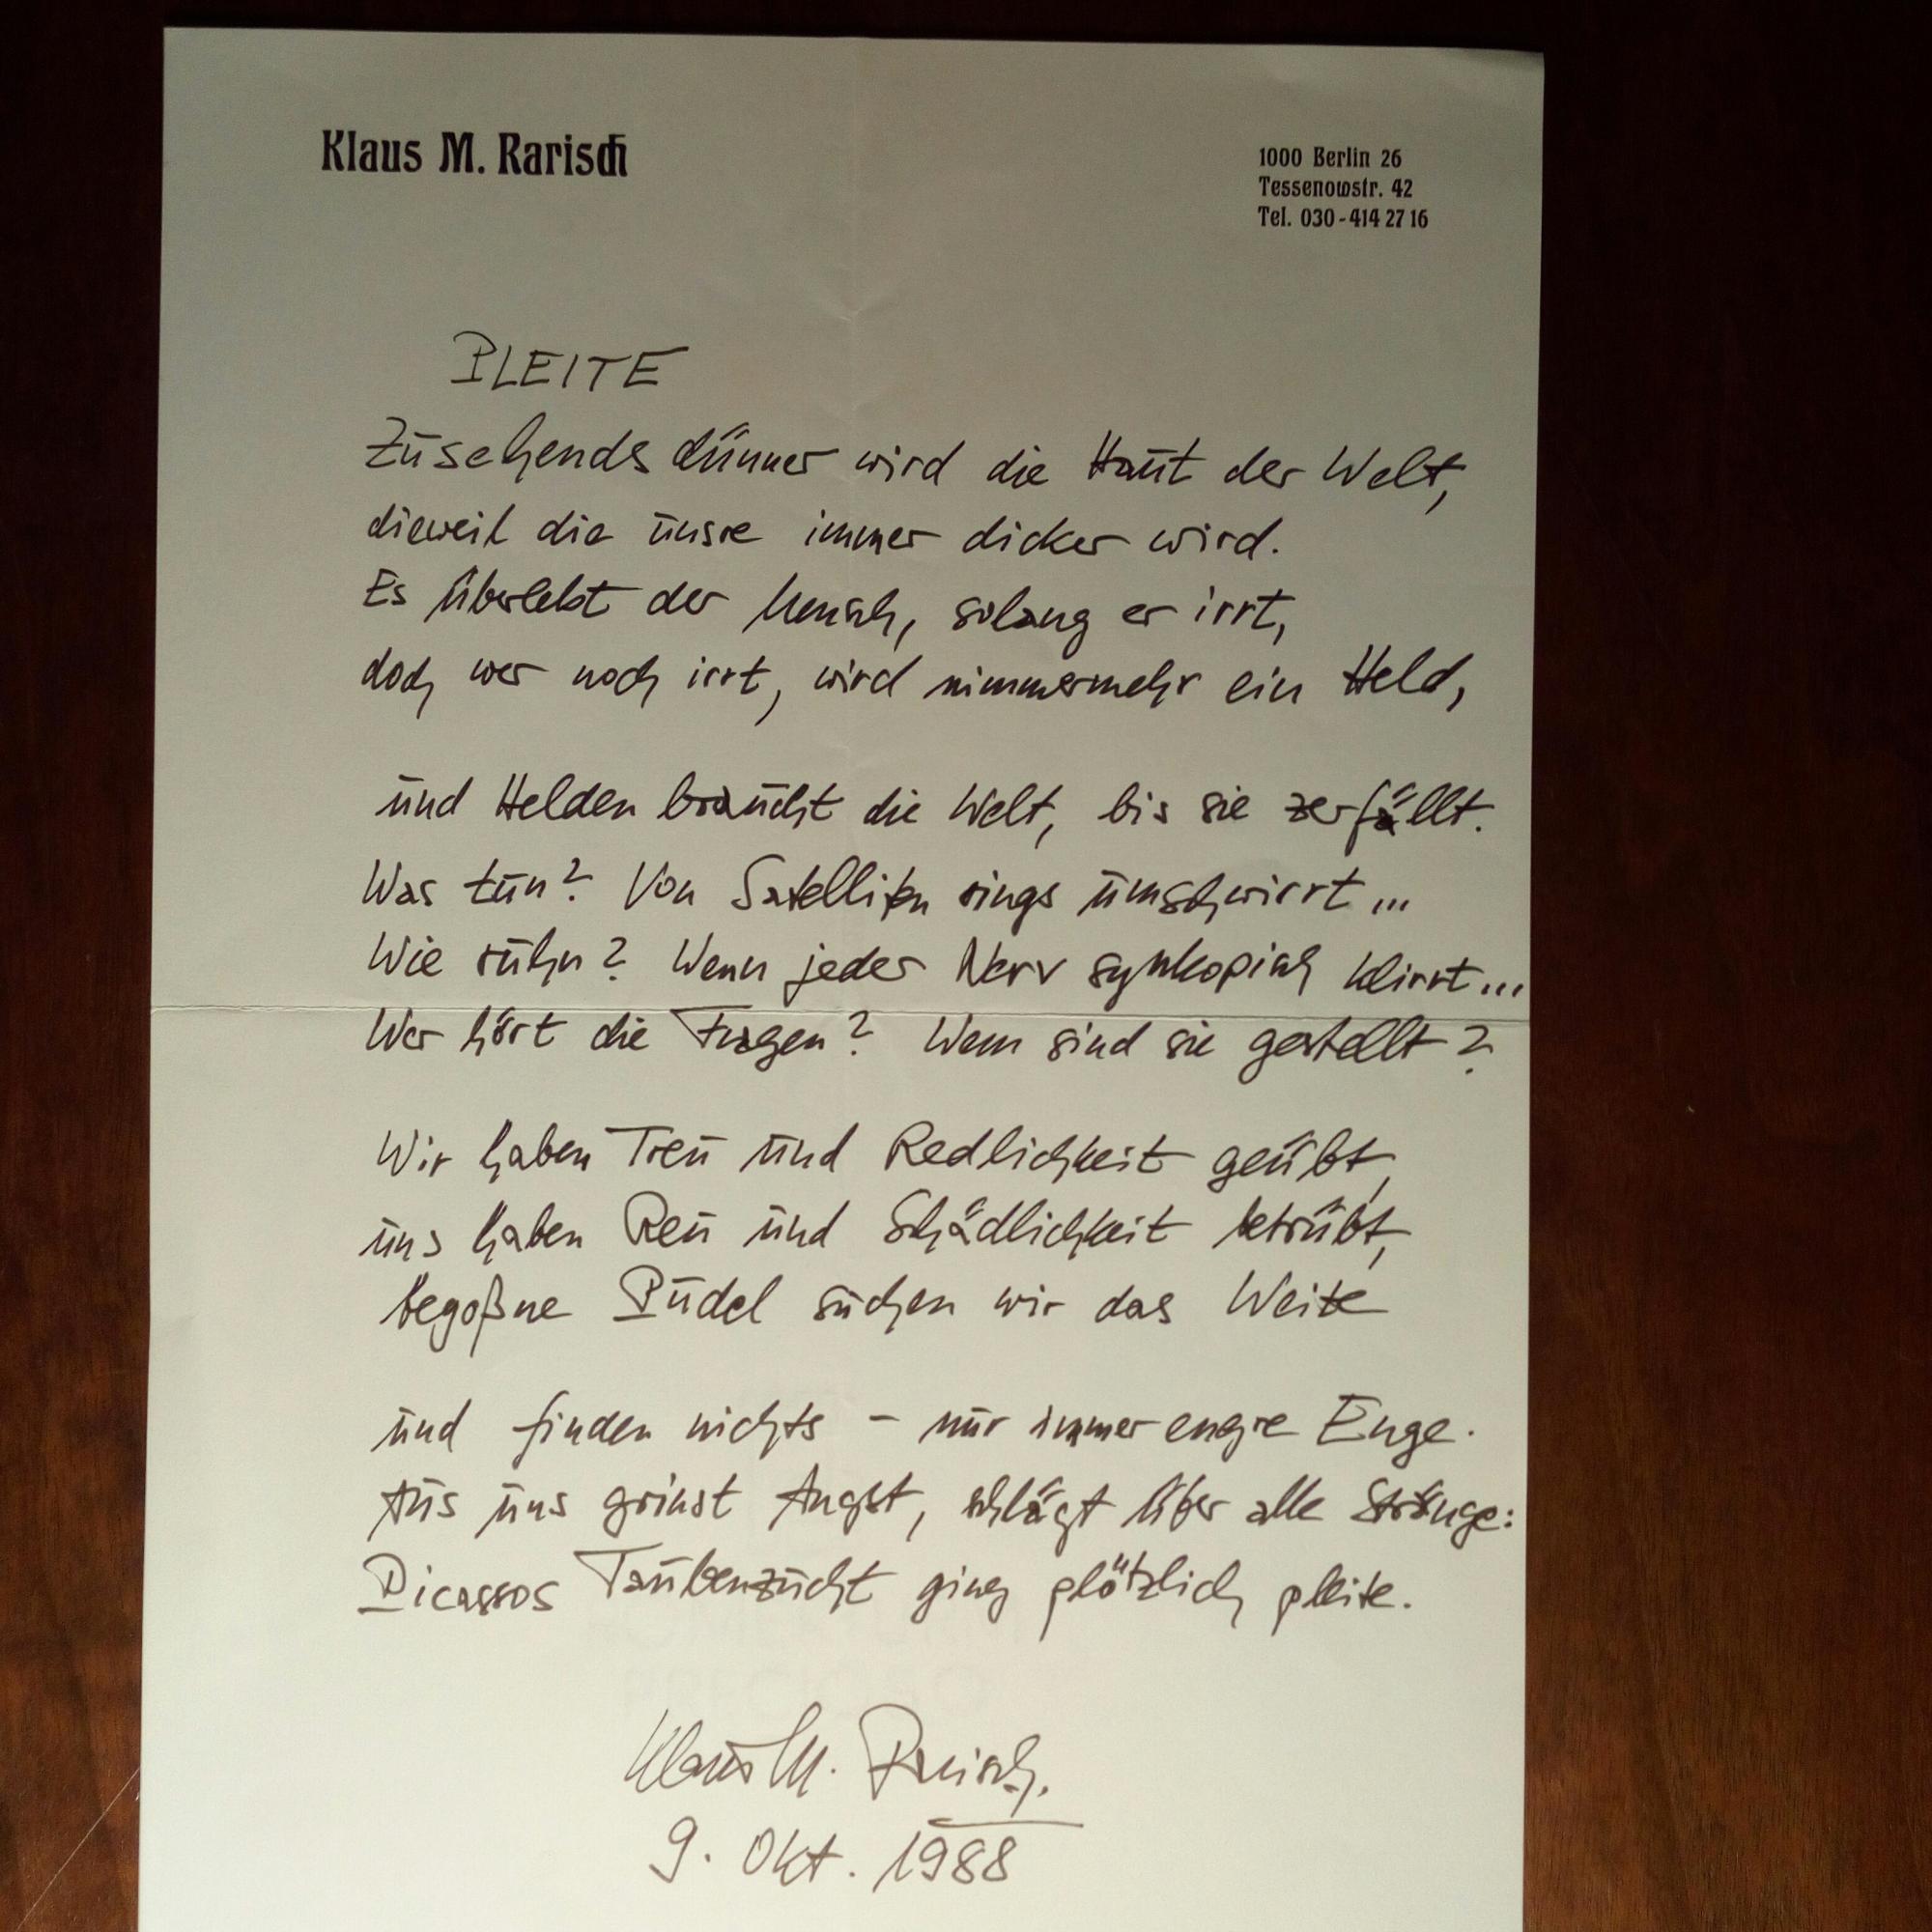 Klaus M. Rarisch
1000 Berlin 26
Tessenowstr. 42
Tel. 030-414 27 16
PLEITE
Zusehends dünner wird die Haut der Welt,
dieweil die unsre immer dicker wird.
Es überlebt der Mensch, solang er irrt,
doch wer noch irrt, wird nimmermehr ein Held,
und Helden braucht die Welt, bis sie zerfällt.
Was tun? Von Satelliten rings umschwirrt...
Wie ruhn? Wenn jeder Nerv synkopisch klirrt...
Wer hört die Fragen? Wem sind sie gestellt?
Wir haben Treu und Redlichkeit geübt,
uns haben Reu und Schädlichkeit betrübt,
begoßne Pudel suchen wir das Weite
und finden nichts – nur immer engre Enge.
Aus uns grinst Angst, schlägt über alle Stränge:
Picassos Taubenzucht ging plötzlich pleite.
Klaus M. Rarisch.
9. Okt. 1988